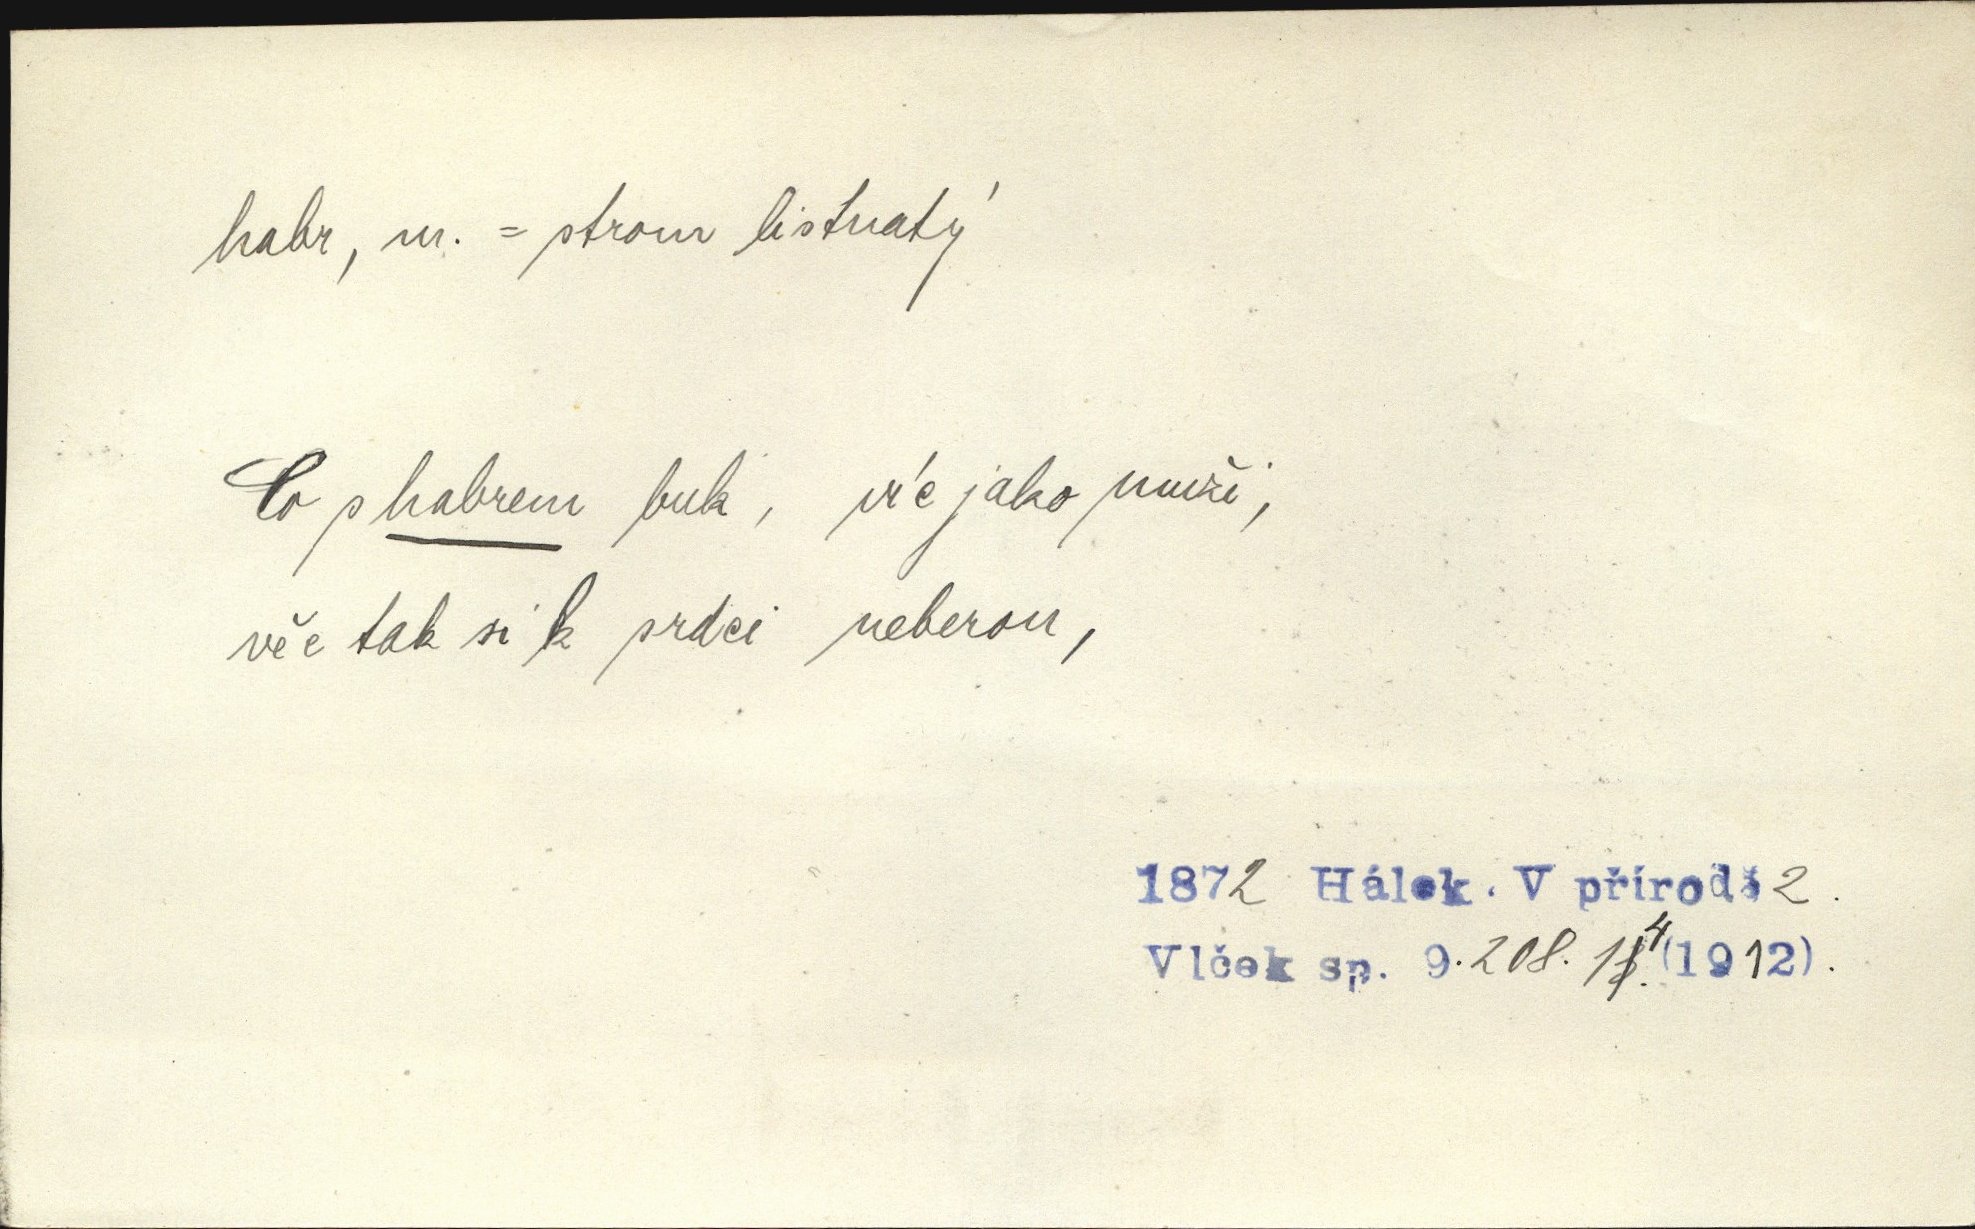 habr, m. = strom listnatý
Co s habrem buk, víc jako muži,
věc tak si k srdci neberou,
1872 Hálek. V přírodě 2.
Vlček sp. 9. 208. 14. (1912).